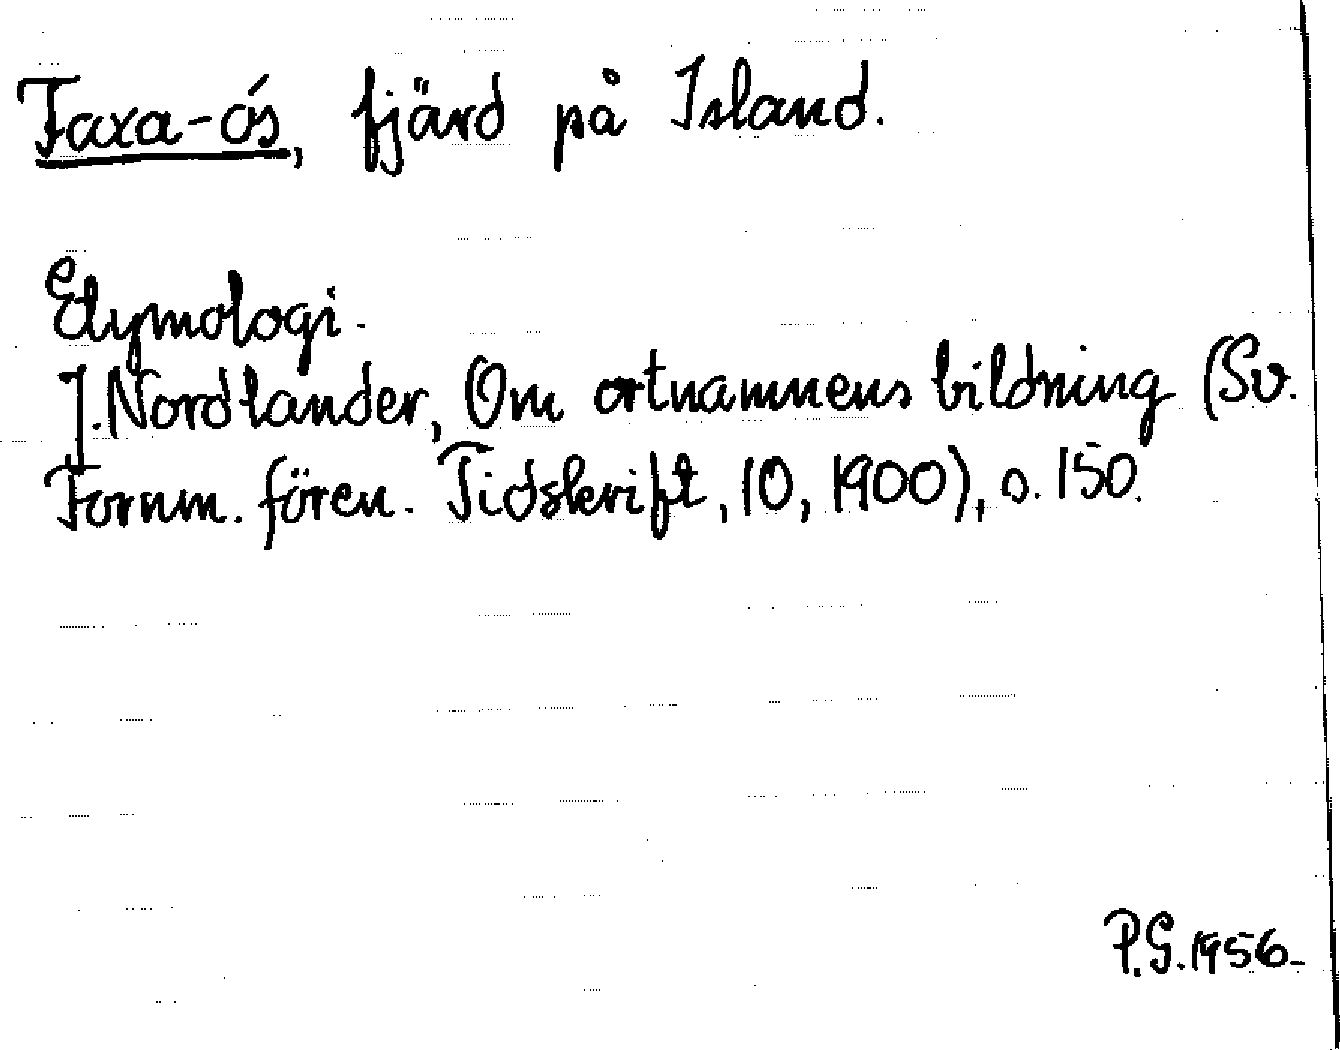 Faxa-ós, fjärd på Island.
Etymologi.
J. Nordlander, Om ortnamnens bildning (Sv.
Fornm. fören. Tidskrift, 10, 1900), s. 150.
P.G. 1956.